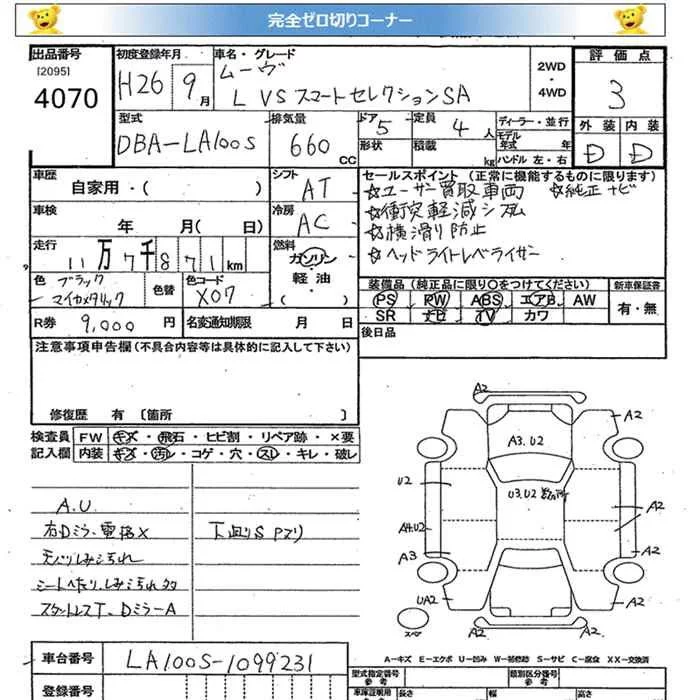 完全ゼロ切りコーナー
出品番号 初度登録年月 車名・グレード 評価点
[2095] 4070
H26 9月
ムーヴ
L VSスマートセレクションSA
2WD・4WD
3
型式 排気量 ドア 定員 ディーラー・並行 外装 内装
DBA-LA100S 660CC 5 4人
モデル年式 年
形状 積載 kg ハンドル 左・右
D D
車歴 シフト セールスポイント (正常に機能するものに限ります)
自家用・( ) AT
☆ユーザー買取車両 ☆純正ナビ
☆衝突軽減システム
☆横滑り防止
☆ヘッドライトレベライザー
車検 冷房
年 月( 日) AC
走行 燃料
11万7千871km
ガソリン・軽油
色 色替 色コード
ブラックマイカメタリック X07
装備品 (純正品に限り○をつけてください) 新車保証書
PS PW ABS エアB AW
SR ナビ TV カワ
有・無
R券 9,000円 名変通知期限 月 日
後日品
注意事項申告欄(不具合内容等は具体的に記入して下さい)
修復歴 有 〔箇所 〕
検査員 FW キズ・飛石・ヒビ割・リペア跡・×要
記入欄 内装 キズ・汚レ・コゲ・穴・スレ・キレ・破レ
A.U
右Dミラー電格X
下廻りS Pマリ
天バリしみ汚れ
シートへたり、しみ汚れ多
スタットレスT、DミラーA
A2
A2
A3.U2
U2
U3.U2
A2
A4.U2
A2
A3
A2
UA2
A2
A2
スペア
車台番号 LA100S-1099231
A-キズ E-エクボ U-凹み W-補修跡 S-サビ C-腐食 XX-交換済
登録番号
型式指定番号 参考 類別区分番号 参考
車庫証明用 参考 長さ 幅 高さ